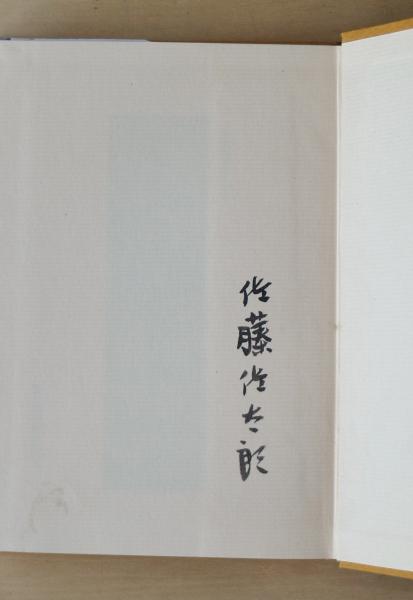 佐藤佐太郎